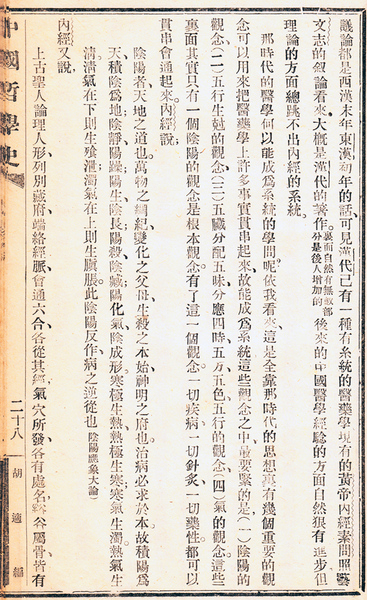 議論都是西漢末年東漢初年的話可見漢代已有一種有系統的醫藥學現有的黃帝內經素問照藝
文志的叙論看來大概是漢代的著作裏面自然有無數部分是後人增加的後來的中國醫學經驗的方面自然狠有進步但
理論的方面總跳不出內經的系統。
那時代的醫學何以能成為系統的學問呢依我看來這是全靠那時代的思想眞有幾個重要的觀
念可以用來把醫藥學上許多事實貫串起來故能成為系統這些觀念之中最要緊的是(一)陰陽的
觀念(二)五行生尅的觀念(三)五臟分配五味分應四時、五方、五色、五行的觀念(四)氣的觀念這些
裏面其實只有一個陰陽的觀念是根本觀念。有了這一個觀念一切疾病、一切針灸、一切藥性都可以
貫串會通起來。內經說
陰陽者、天地之道也。萬物之綱紀、變化之父母、生殺之本始、神明之府也。治病必求於本。故積陽為
天、積陰為地。陰靜陽躁、陽生陰長、陽殺陰藏、陽化氣、陰成形。寒極生熱、熱極生寒。寒氣生濁、熱氣生
清。清氣在下則生飧泄、濁氣在上則生䐜脹。此陰陽反作、病之逆從也(陰陽應象大論)
內經又說、
上古聖人論理人形、列別臧府、端絡經脈、會通六合、各從其經。氣穴所發、各有處名、谿谷屬骨、皆有
中國哲學史
二十八
胡適編